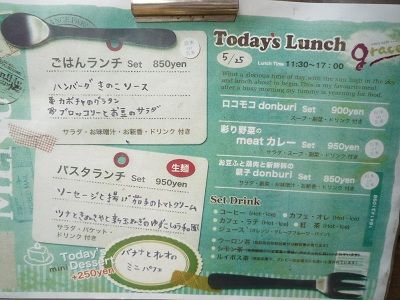 ごはんランチ Set 850yen
ハンバーグ きのこソース
カボチャのグラタン
ブロッコリーとお豆のサラダ
サラダ・お味噌汁・お新香・ドリンク 付き
生麺
パスタランチ Set 950yen
ソーセージと揚げ茄子のトマトクリーム
ツナときのこサヤと新玉ねぎのゆずこしょう和風
サラダ・バケット・
ドリンク 付き
Today's
mini Dessert
+250yen
バナナとオレオの
ミニパフェ
Today's Lunch
5/25
Lunch Time 11:30~17:00
grace
What a delicious time of day, with the sun high in the sky
and lunch already on the table. This is my announcement
after a busy morning my tummy is yearning for food.
ロコモコ donburi Set 900yen
スープ・副菜・ドリンク 付き
彩り野菜の
meat カレー Set 950yen
サラダ・副菜・ドリンク 付き
お豆ふと鶏肉と新鮮卵の
親子 donburi Set 850yen
お味噌汁・副菜・ドリンク 付き
Set Drink
コーヒー (Hot・Ice) カフェ・オレ (Hot・Ice)
カフェ・ラテ (Hot・Ice) 紅 茶 (Hot・Ice)
ジュース
ウーロン茶
シモン茶
ルイボス茶